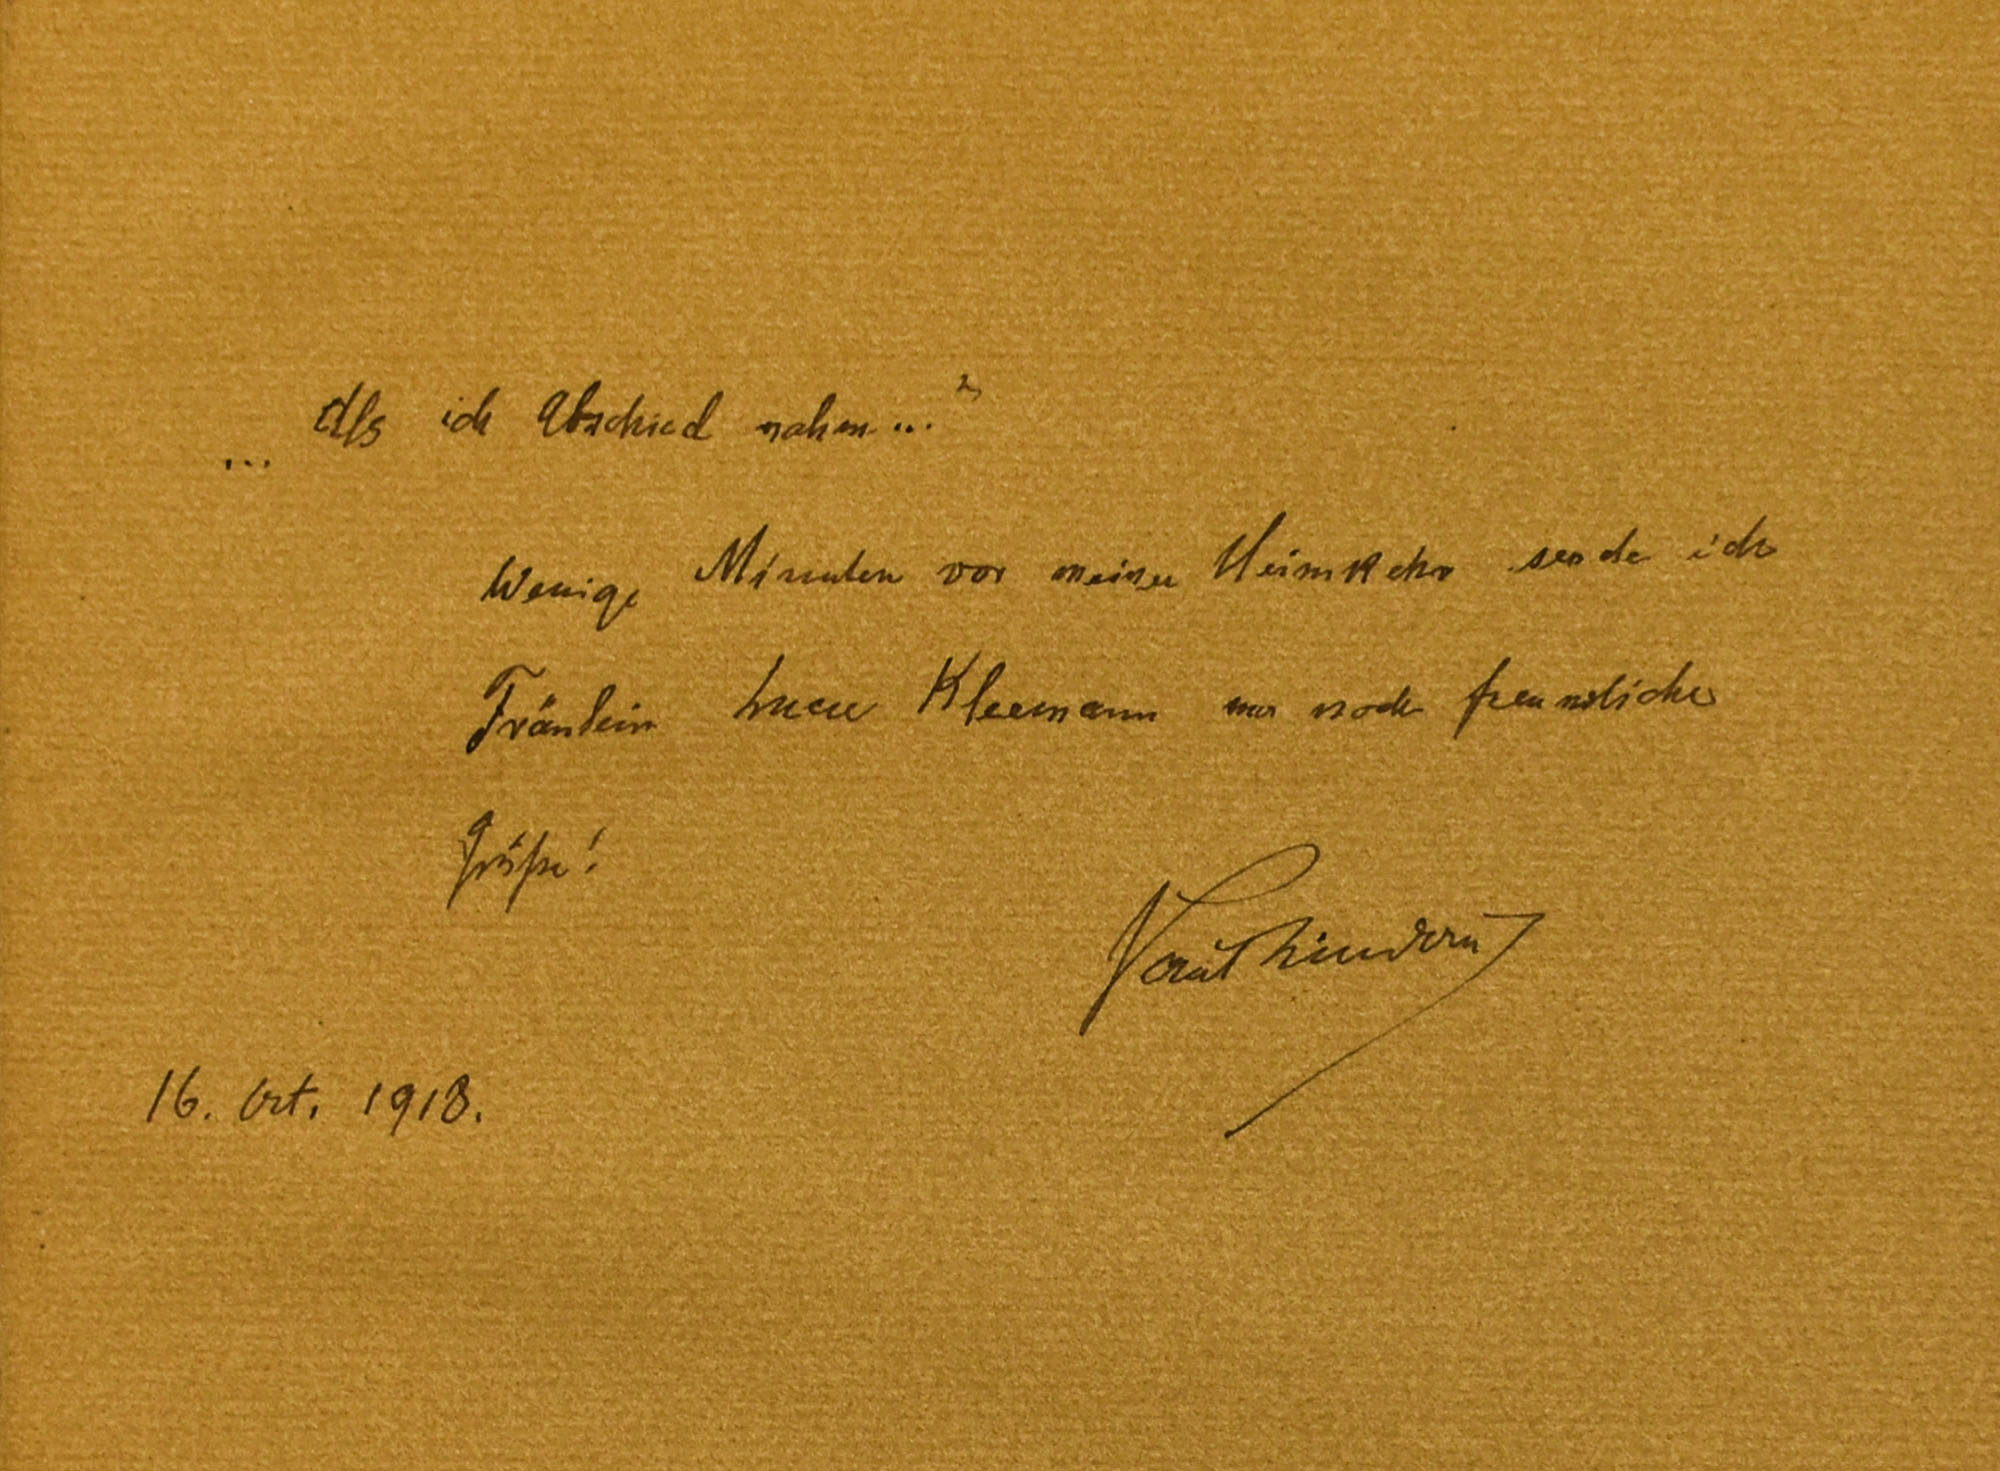 ... Als ich Abschied nahm ..."
Wenige Minuten vor meiner Heimkehr sende ich
Fräulein Kleemann nur noch freundliche
Grüße!
16. Oct. 1918.